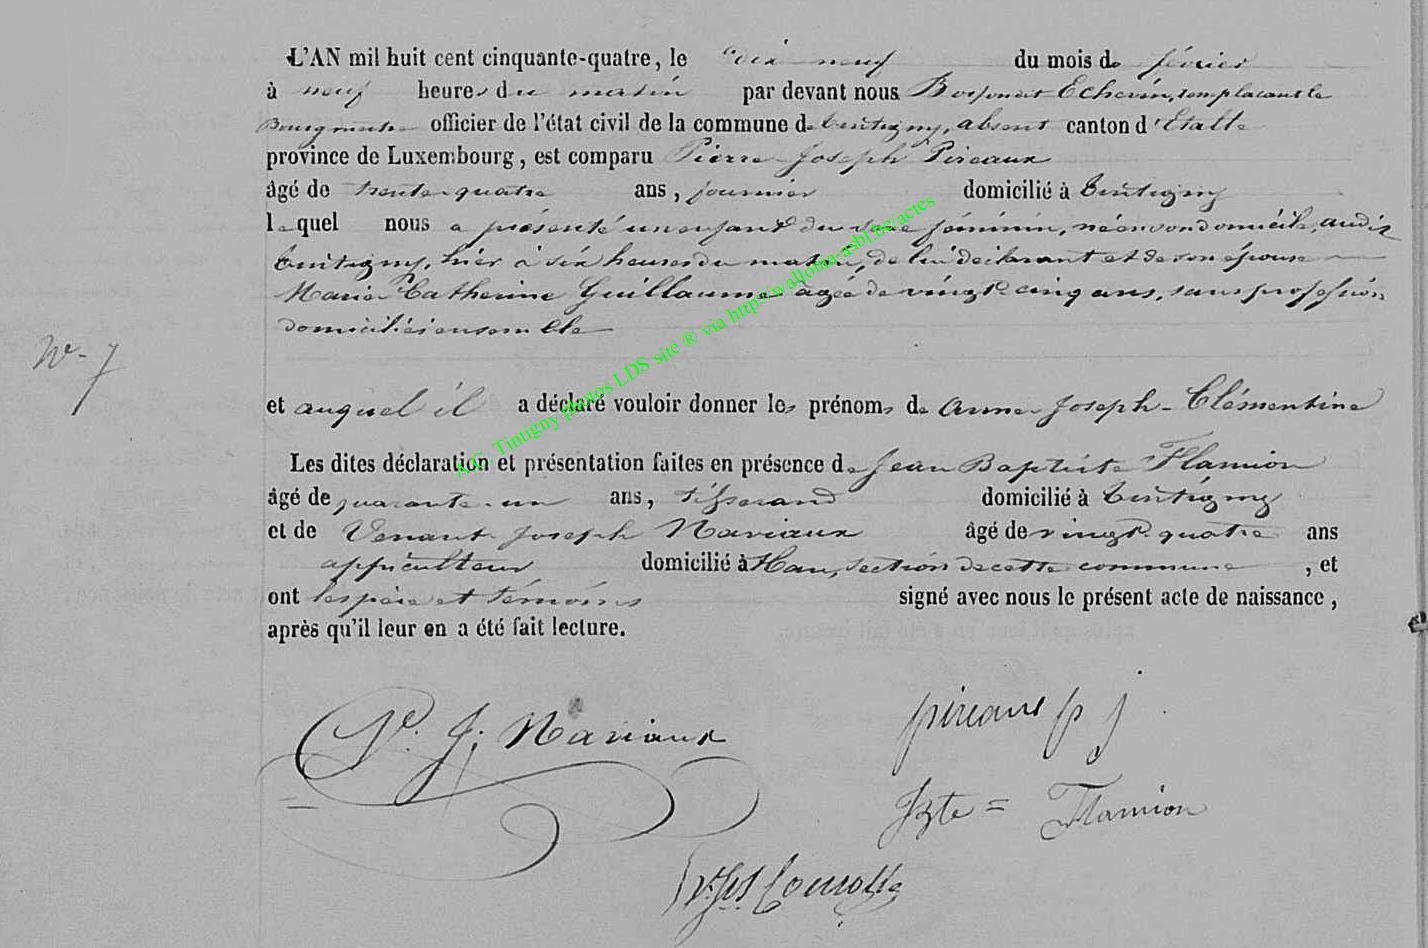 L'AN mil huit cent cinquante-quatre, le dix neuf du mois de février
à neuf heures du matin par devant nous Echevin, remplacant le
Bourgmestre officier de l'état civil de la commune de tintigny, absent canton d'Etalle
province de Luxembourg, est comparu Pierre Joseph Pireaux
âgé de trente-quatre ans, journier domicilié à tintigny
lequel nous a présenté un enfant du sexe féminin, né en son domicile, audit
tintigny, hier à six heures du matin, de lui déclarant et de son épouse
Marie Catherine Guillaume agée de vingt cinq ans, sans profession
domiciliés ensemble
N° 7
et auquel il a déclaré vouloir donner les prénoms de Anne-Joseph-Clémentine
Les dites déclaration et présentation faites en présence de Jean Baptiste Flamion
âgé de quarante-un ans, tisserand domicilié à tintigny
et de Venant Joseph Naviaux âgé de vingt quatre ans
appiculteur domicilié à Han, section de cette commune, et
ont les père et témoins signé avec nous le présent acte de naissance,
après qu'il leur en a été fait lecture.
V. J. Naviaux
pireaux p j
JBte = Flamion
A.C. Tintigny photos LDS site ® via http://wallonia-asbl.be/actes